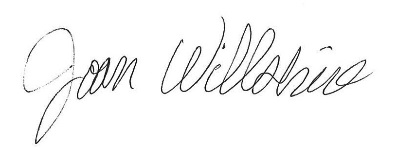 Joan Willshire